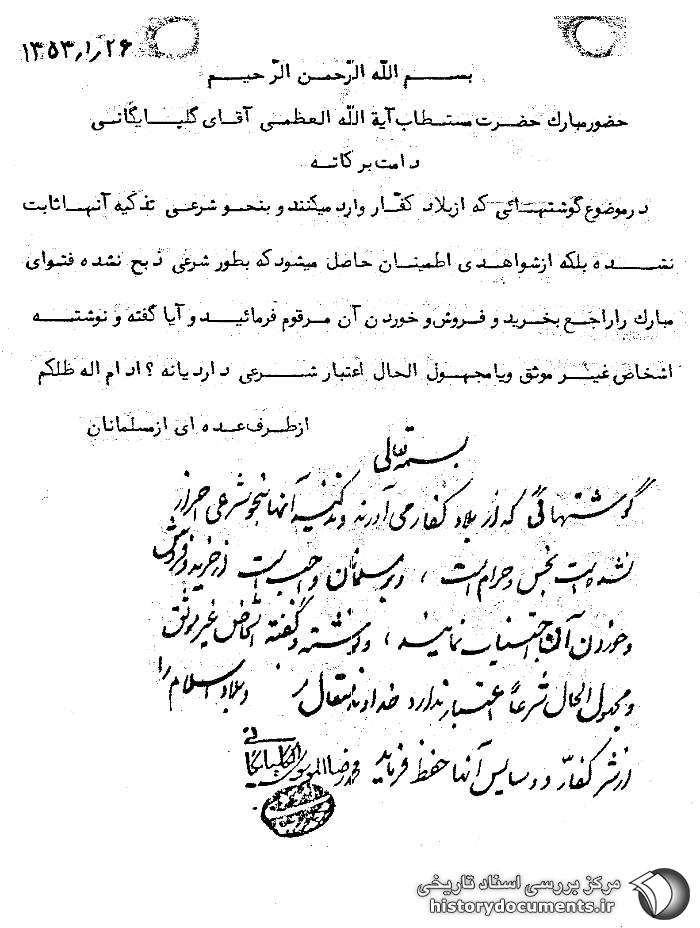 ۱۳۵۳٫۱٫۲۶
بسم الله الرحمن الرحیم
حضور مبارك حضرت مستطاب آية الله العظمی آقای گلپایگانی
دامت برکاته
در موضوع گوشتهائی که از بلاد کفار وارد میکنند و بنحو شرعی تذکیه آنها ثابت
نشده بلکه از شواهدی اطمینان حاصل میشود که بطور شرعی ذبح نشده فتوای
مبارك را راجع بخرید و فروش و خوردن آن مرقوم فرمائید و آیا گفته و نوشته
اشخاص غیر موثق و یا مجهول الحال اعتبار شرعی دارد یا نه ؟ ادام اله ظلکم
از طرف عده ای از مسلمانان
بسمه تعالی
گوشتهائی که از بلاد کفار می آورند و تذکیه آنها بنحو شرعی احراز
نشده است نجس و حرام است ، و بر مسلمانان واجب است از خرید و فروش
و خوردن آن اجتناب نمایند ، و نوشته و گفته اشخاص غیر موثق
و مجهول الحال شرعاً اعتبار ندارد خداوند متعال و بلاد اسلام را
از شر کفار و دسایس آنها حفظ فرماید محمد رضا الموسوی الگلپایگانی
مرکز بررسی اسناد تاریخی
historydocuments.ir